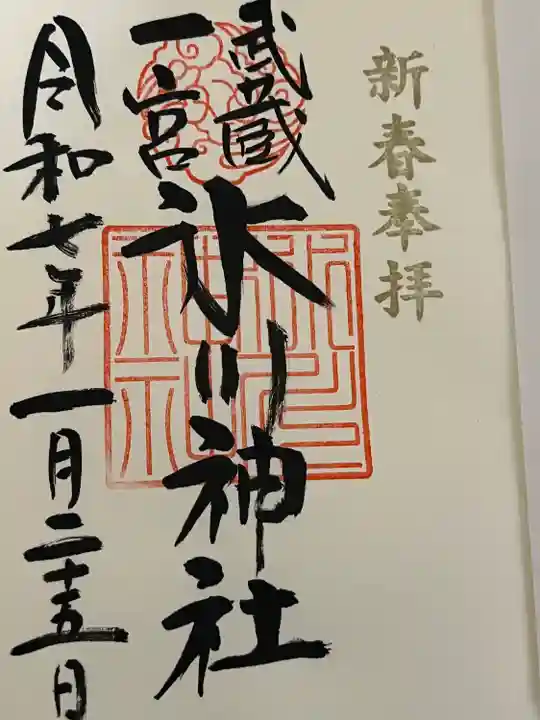 新春奉拝
武蔵
一宮
氷川神社
令和七年一月二十五日